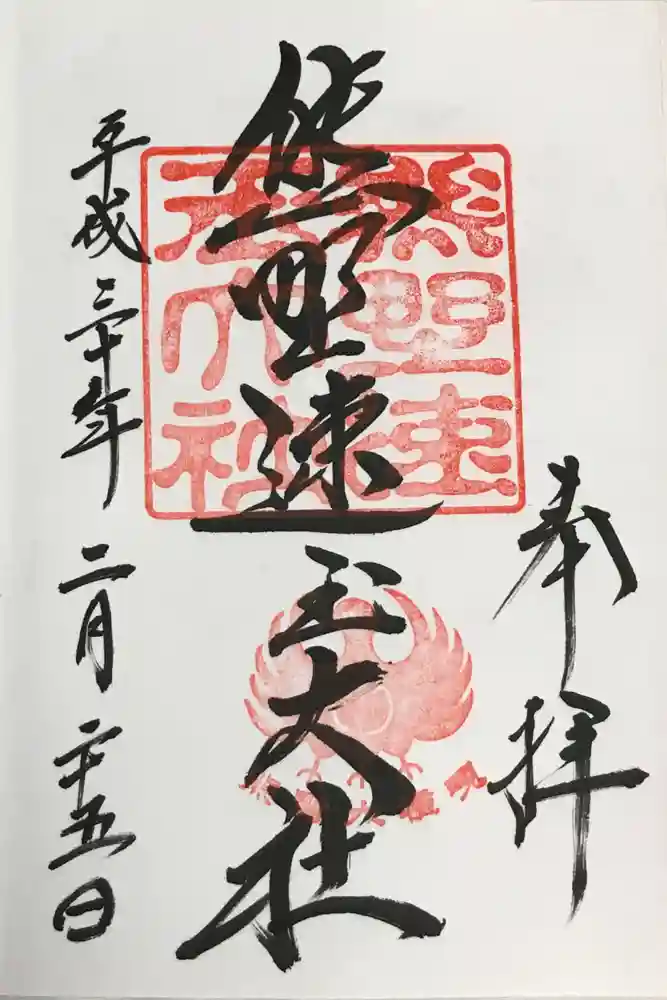 奉拝
熊野速玉大社
熊野速
玉大社
平成三十年 二月二十五日